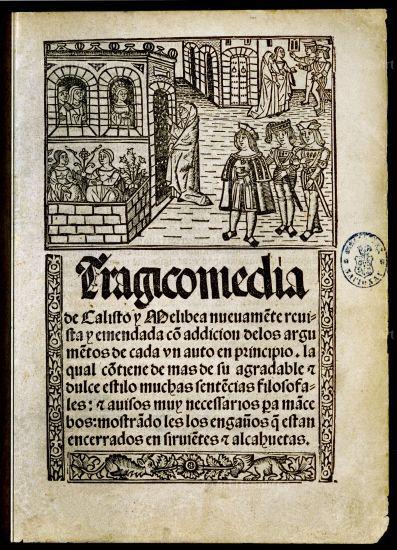 Tragicomedia
de Calisto y Melibea nueuamẽte reui
sta y emendada cõ addicion delos argu
mẽtos de cada vn auto en principio. la
qual cõtiene de mas de su agradable ⁊
dulce estilo muchas sentẽcias filosofa-
les: ⁊ auisos muy necessarios pa mãce
bos: mostrãdo les los engaños q̃ estan
encerrados en siruiẽtes ⁊ alcahuetas.
NACIONAL